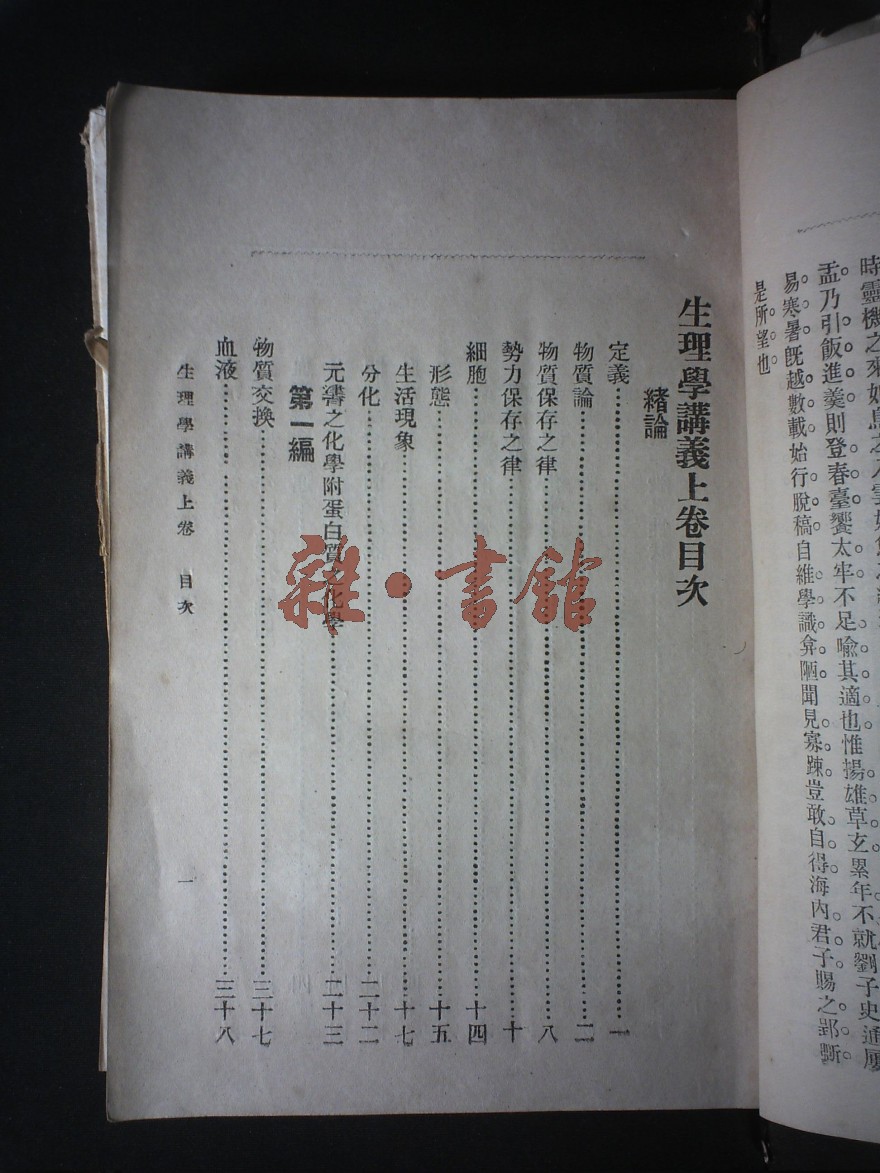 孟乃引飯進羹則登春臺饗太牢不足喻其適也惟揚雄草玄累年不就劉子史通屢
易寒暑旣越數載始行脫稿自維學識弇陋聞見寡踈豈敢自得海內君子賜之郢斲
是所望也
生理學講義上卷目次
緖論
定義……一
物質論……二
物質保存之律……八
勢力保存之律……十
細胞……十四
形態……十五
生活現象……十七
分化……二十二
元素之化學附蛋白質之化學……二十三
第一編
物質交換……三十七
血液……三十八
生理學講義上卷 目次 一
雜·書館